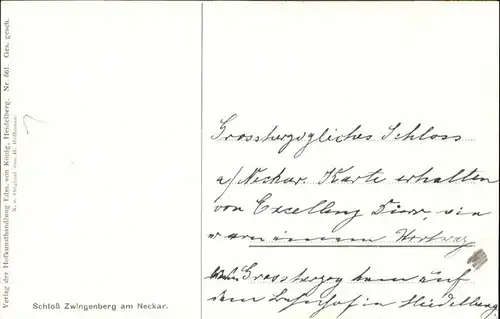 Verlag der Hofkunsthandlung Edm. von König, Heidelberg. Nr. 661. Ges. gesch.
N. e. Original von H. Hoffmann.
Schloß Zwingenberg am Neckar.
Grossherzogliches Schloss
a/ Neckar. Karte erhalten
von Excellenz
waren
Grossherzog kam auf
dem Bahnhof in Heidelberg